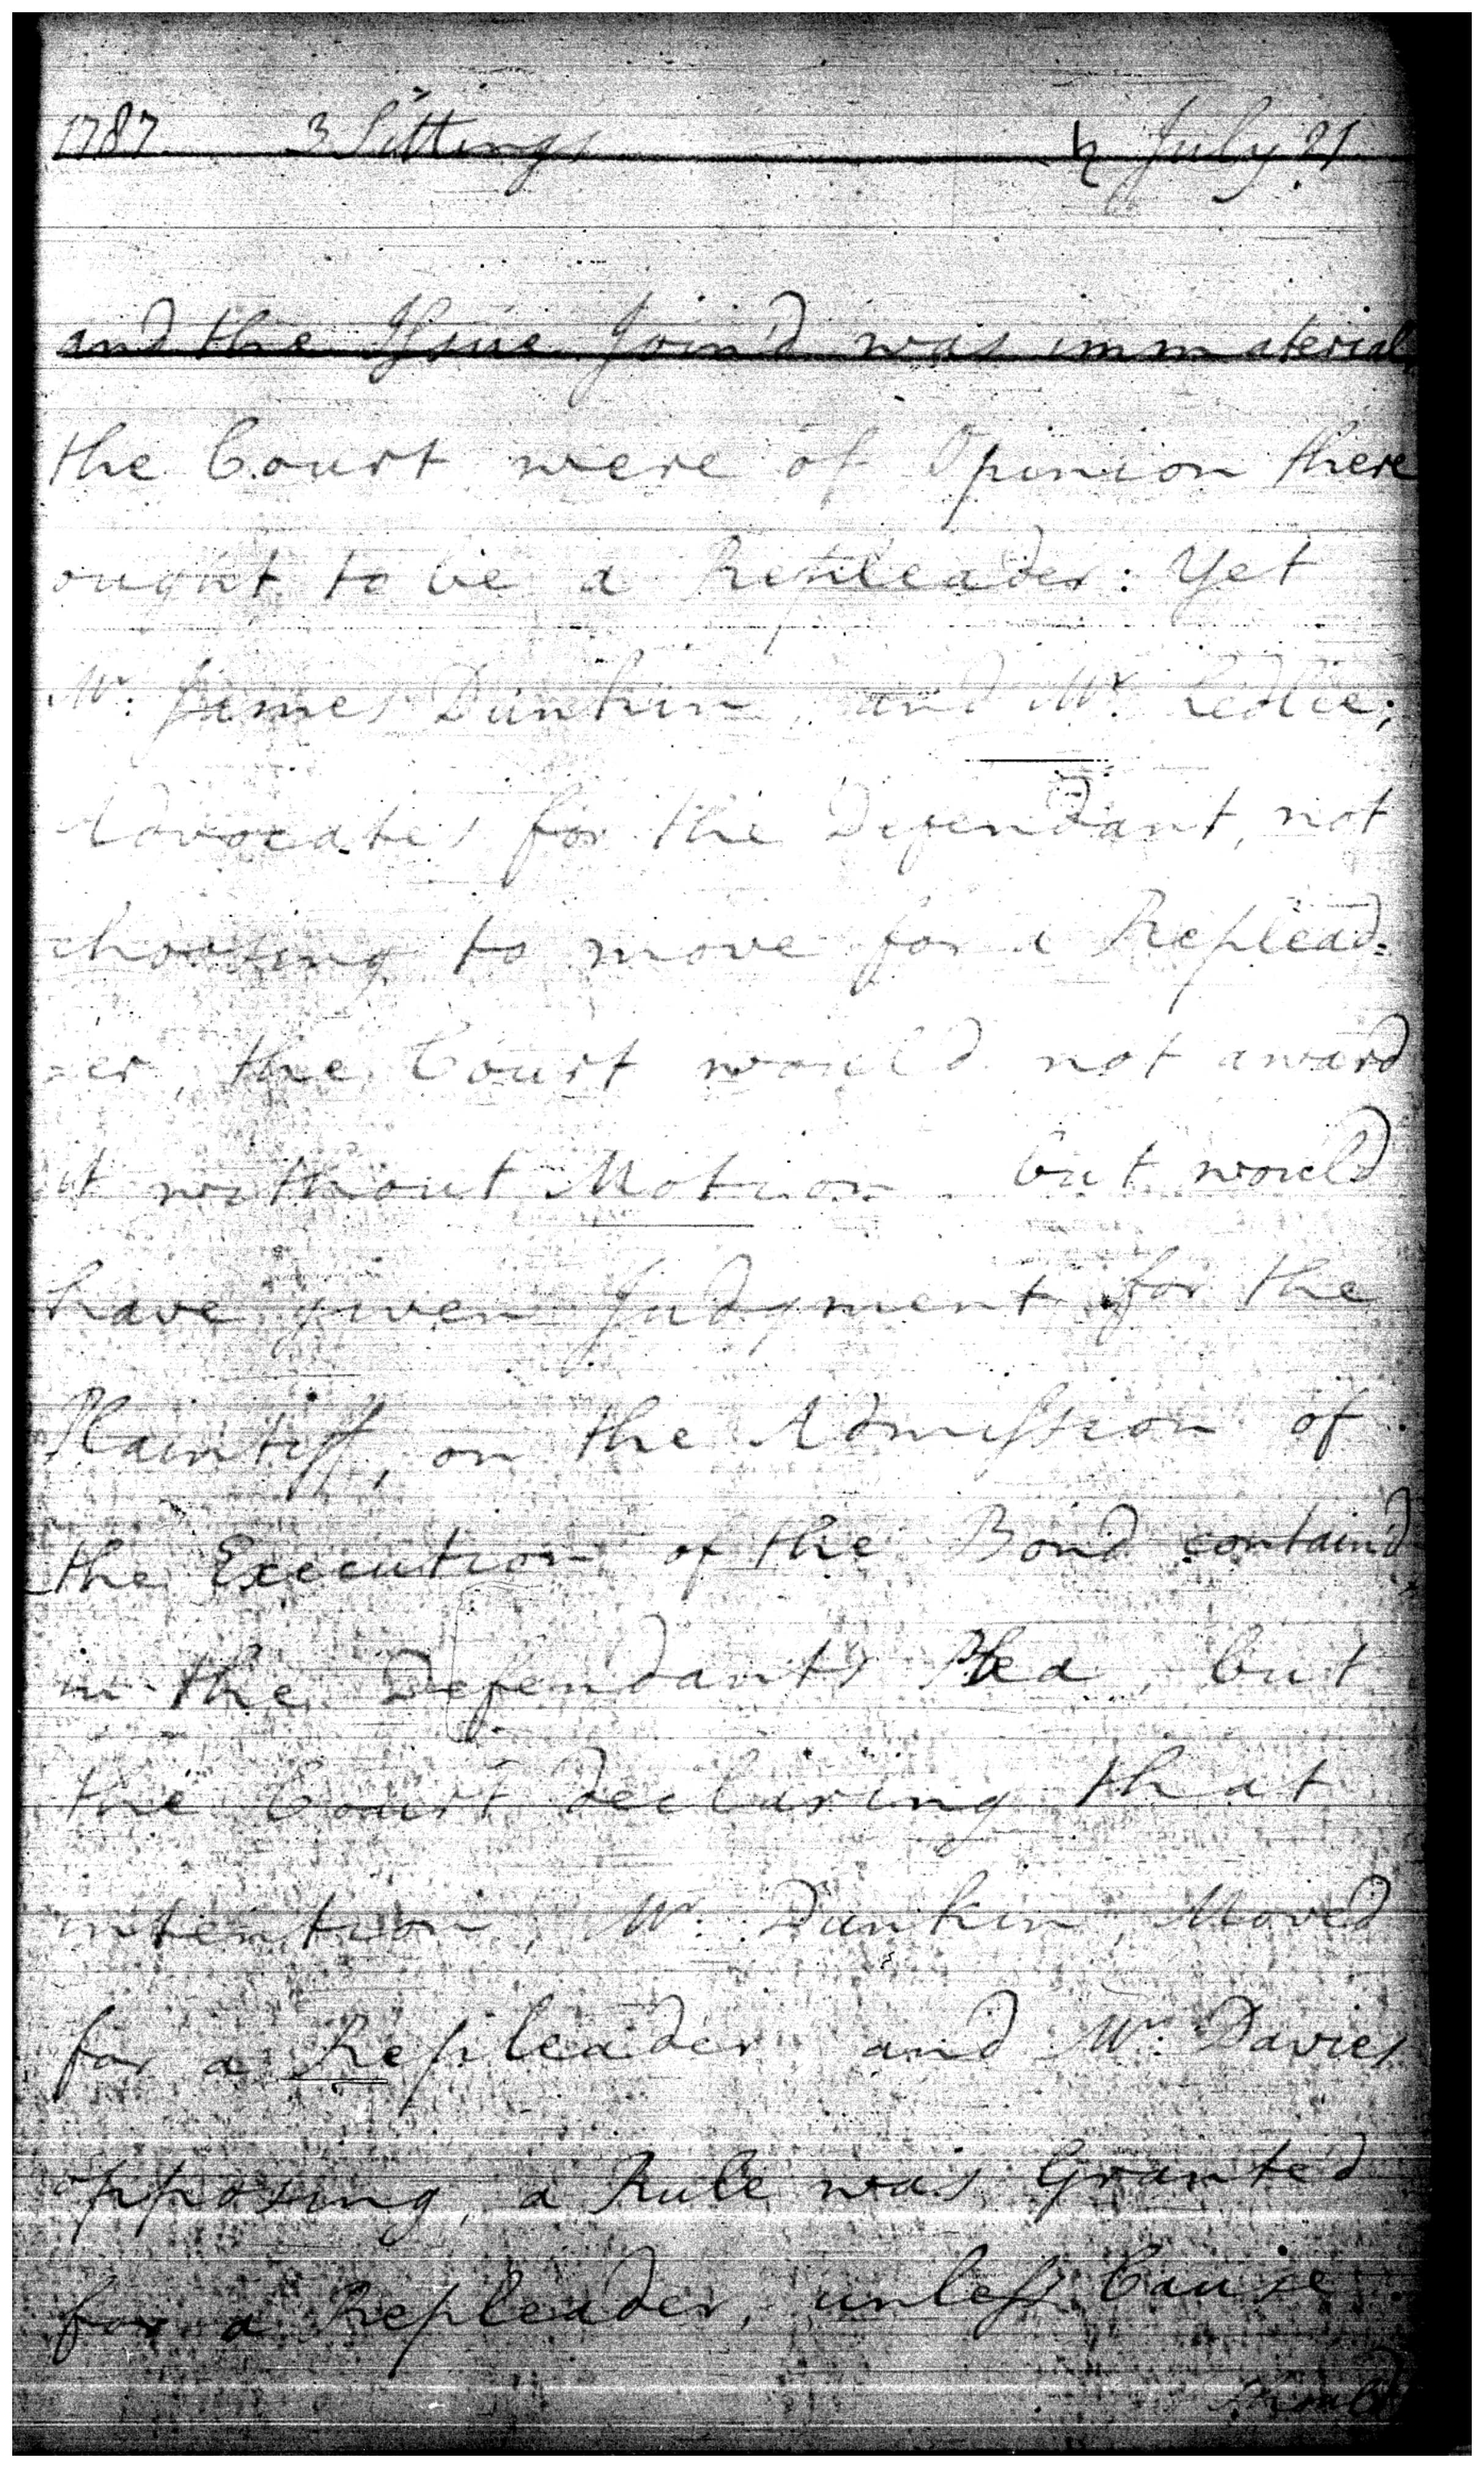 1787 3 Sittings ♄ July 21
and the Issue Join'd was immaterial
the Court were of Opinion there
ought to be a Repleader: Yet
Mr. James Dunkin, and Mr. Ledlie;
Advocates for the Defendant, not
choosing to move for a Replead=
=er, the Court would not award
it without Motion. but would
have given Judgment for the
Plaintiff, on the Admission of
the Execution of the Bond contain'd
in the Defendants Plea, but
the Court declaring that
intention, Mr. Dunkin, Moved
for a Repleader and Mr. Davies
opposing, a Rule was Granted
for a Repleader, unless Cause
should